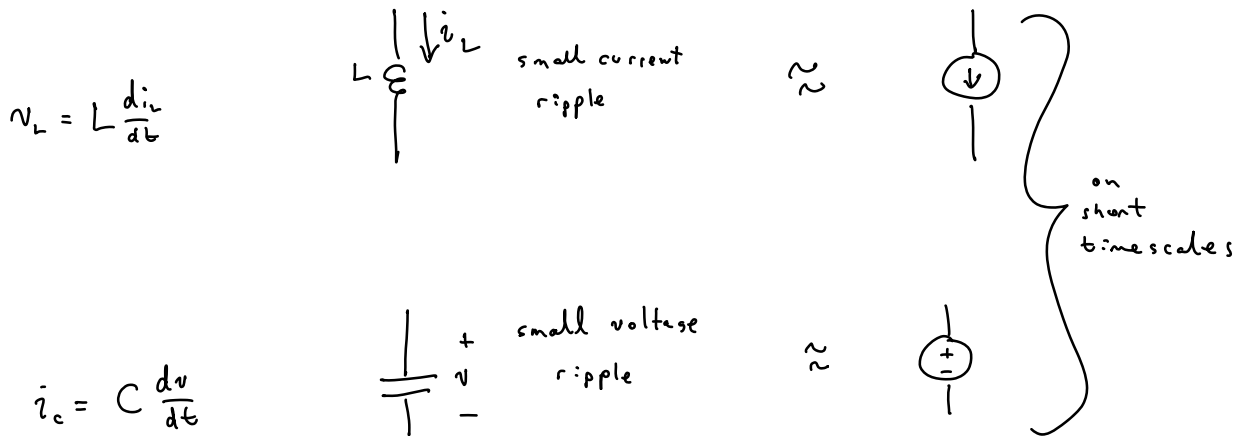 v_L = L di_L/dt
L
i_L
small current
ripple
≈
on
short
timescales
i_c = C dv/dt
+
v
−
small voltage
ripple
≈
+
−